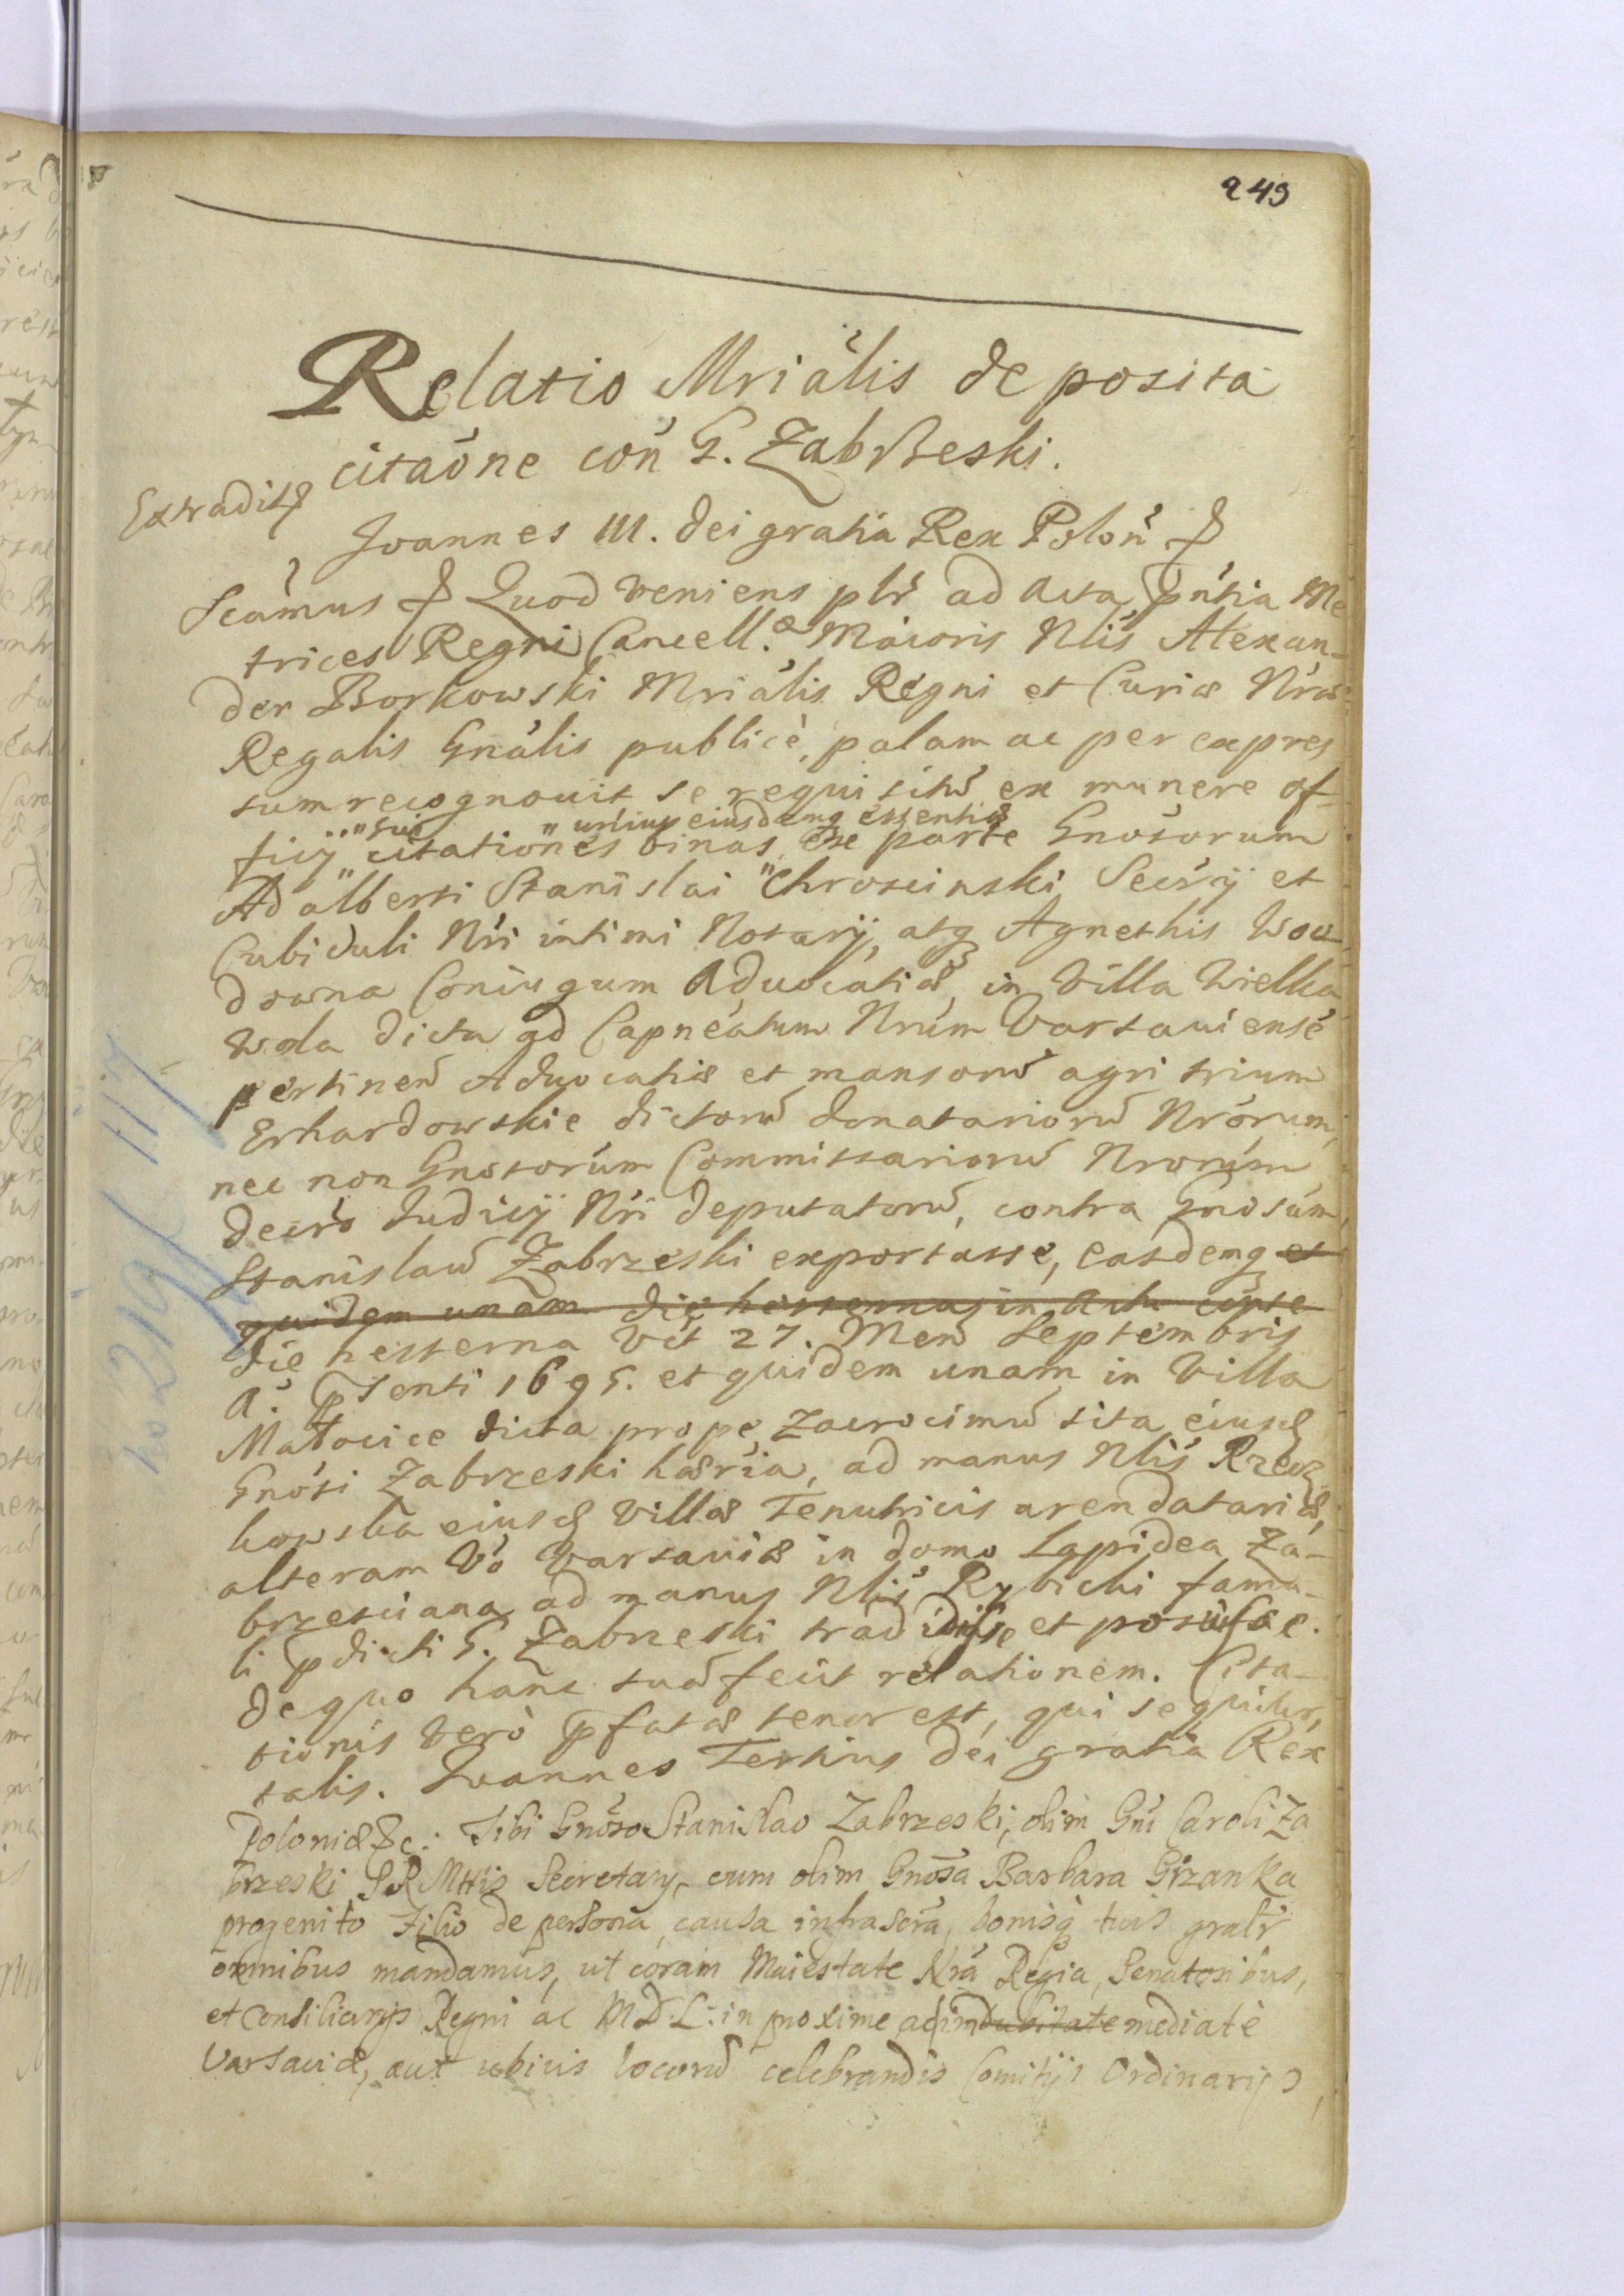 243
Relatio Mriālis de posita
citaōne coñ G. Zabrzeski.
Extradita
Joannes III. Dei gratia Rex Poloñ &
Scāmus & Quod veniens plr ad Acta pńtia Me
trices Regni Cancellæ Maioris Nlis Alexan-
der Borkowski Mriālis Regni et Curiæ Nræ
Regalis Gnālis publicè, palam ac per expres
sum recognovit se requisitū ex munere of-
ficij sui citationes binas unius eiusdemq essentiæ ex parte Gnosorum
Adalberti Stanislai Chroscinski Secrij et
Cubiculi Nri intimi Notarij, atq Agnethis Wou
downa Coniugum Advocatiæ, in Villa Wielka
Wola dicta ad Capneatum Nrum Varsaviense
pertineñ Advocatiæ et mansorū agri trium
Erhardowskie dictorū donatariorū Nrorum,
nec non Gnosorum Commissariorū Nrorum
decro Iudicij Nri deputatorū, contra Gnosum
Stanislaū Zabrzeski exportasse, easdemq et
quidem unam die hesterna in
die hesterna vēt 27. Menš Septembris
A. pṣenti 1695. et quidem unam in Villa
Małocice dicta prope Zacrocimū sita eiusd
Gnosi Zabrzeski hæria, ad manus Nlis Rzecz
kowska eiusd Villæ Tenutricis arendatariæ,
alteram Vo Varsaviæ in domo Lapidea Za-
brzesciana ad manus Nlis Rybicki famu-
li pdicti G. Zabrzeski tradidisse et posuisse.
De quo hanc suā fecit relationem. Cita-
tionis verò pfatæ tenor est, qui sequitur,
talis. Joannes Tertius Dei gratia Rex
Poloniæ &c: Tibi Gnoso Stanislao Zabrzeski, olim Gni Caroli Za
brzeski S R Mttis Secretarij, cum olim Gnosa Barbara Girzanka
progenito Filio de persona, causa infrascra, bonisq tuis gralr
omnibus mandamus, ut coram Maiestate Nra Regia, Senatoribus,
et Consiliarijs Regni ac M.D.L: in proxime ad indubitate mediatè
Varsaviæ, aut ubivis locorū celebrandis Comitijs Ordinarijs,